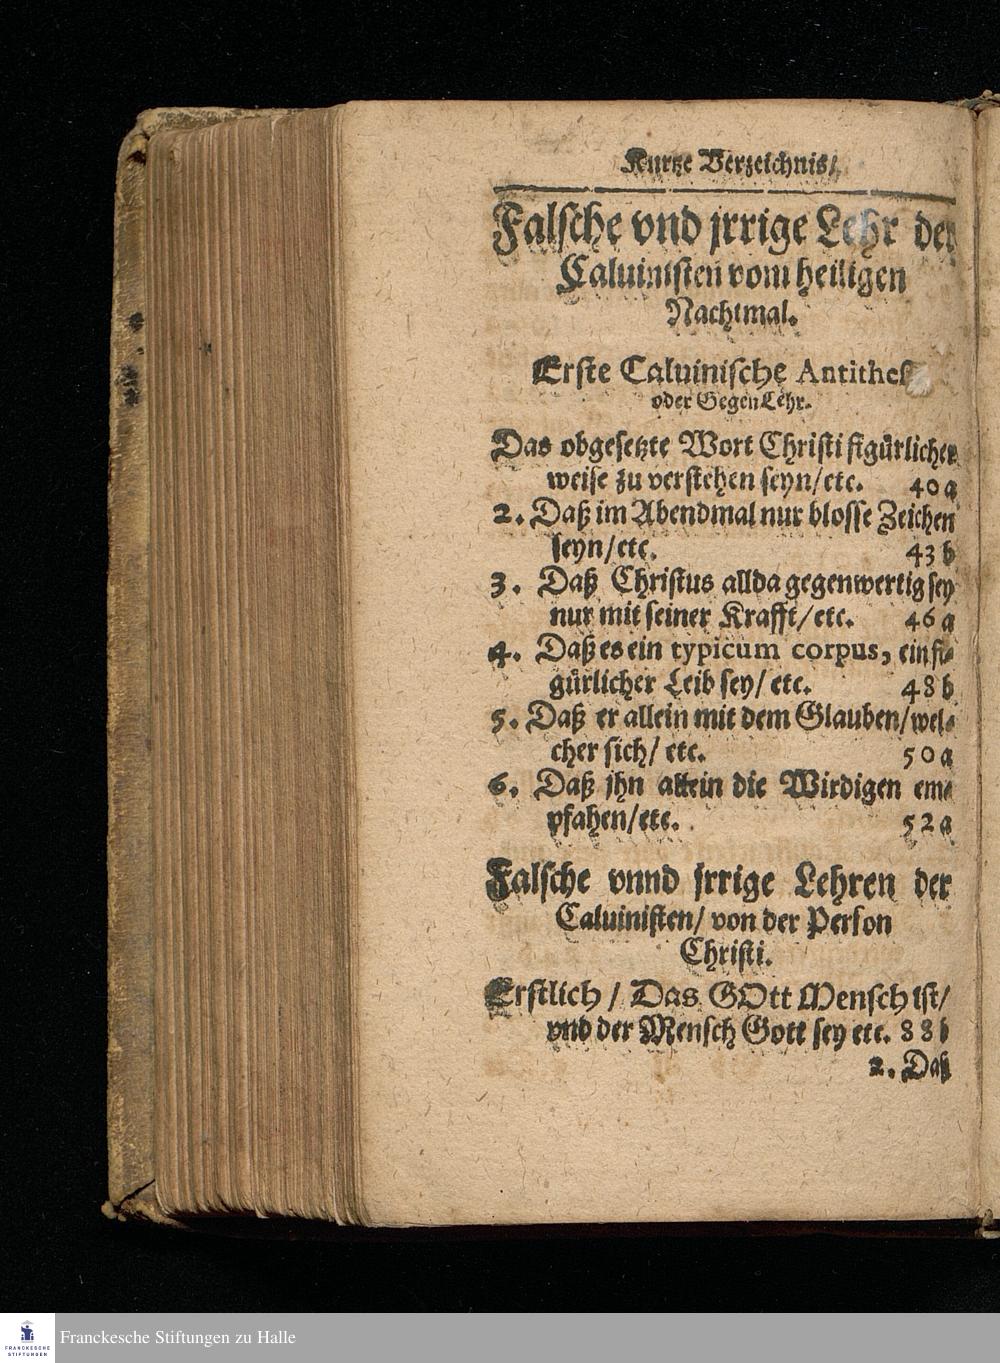 Kurtze Verzeichnis/
Falsche vnd jrrige Lehr der
Caluinisten vom heiligen
Nachtmal.
Erste Caluinische Antithes
oder GegenLehr.
Das obgesetzte Wort Christi figürlicher
weise zu verstehen seyn/etc. 40 a
2. Daß im Abendmal nur blosse Zeichen
seyn/etc. 43 b
3. Daß Christus allda gegenwertig sey
nur mit seiner Krafft/etc. 46 a
4. Daß es ein typicum corpus, ein fi-
gürlicher Leib sey/etc. 48 b
5. Daß er allein mit dem Glauben/wel-
cher sich/etc. 50 a
6. Daß jhn allein die Wirdigen em-
pfahen/etc. 52 a
Falsche vnnd jrrige Lehren der
Caluinisten/von der Person
Christi.
Erstlich/Das GOtt Mensch ist/
vnd der Mensch Gott sey etc. 88 b
2. Daß
FRANCKESCHE
STIFTUNGEN
Franckesche Stiftungen zu Halle